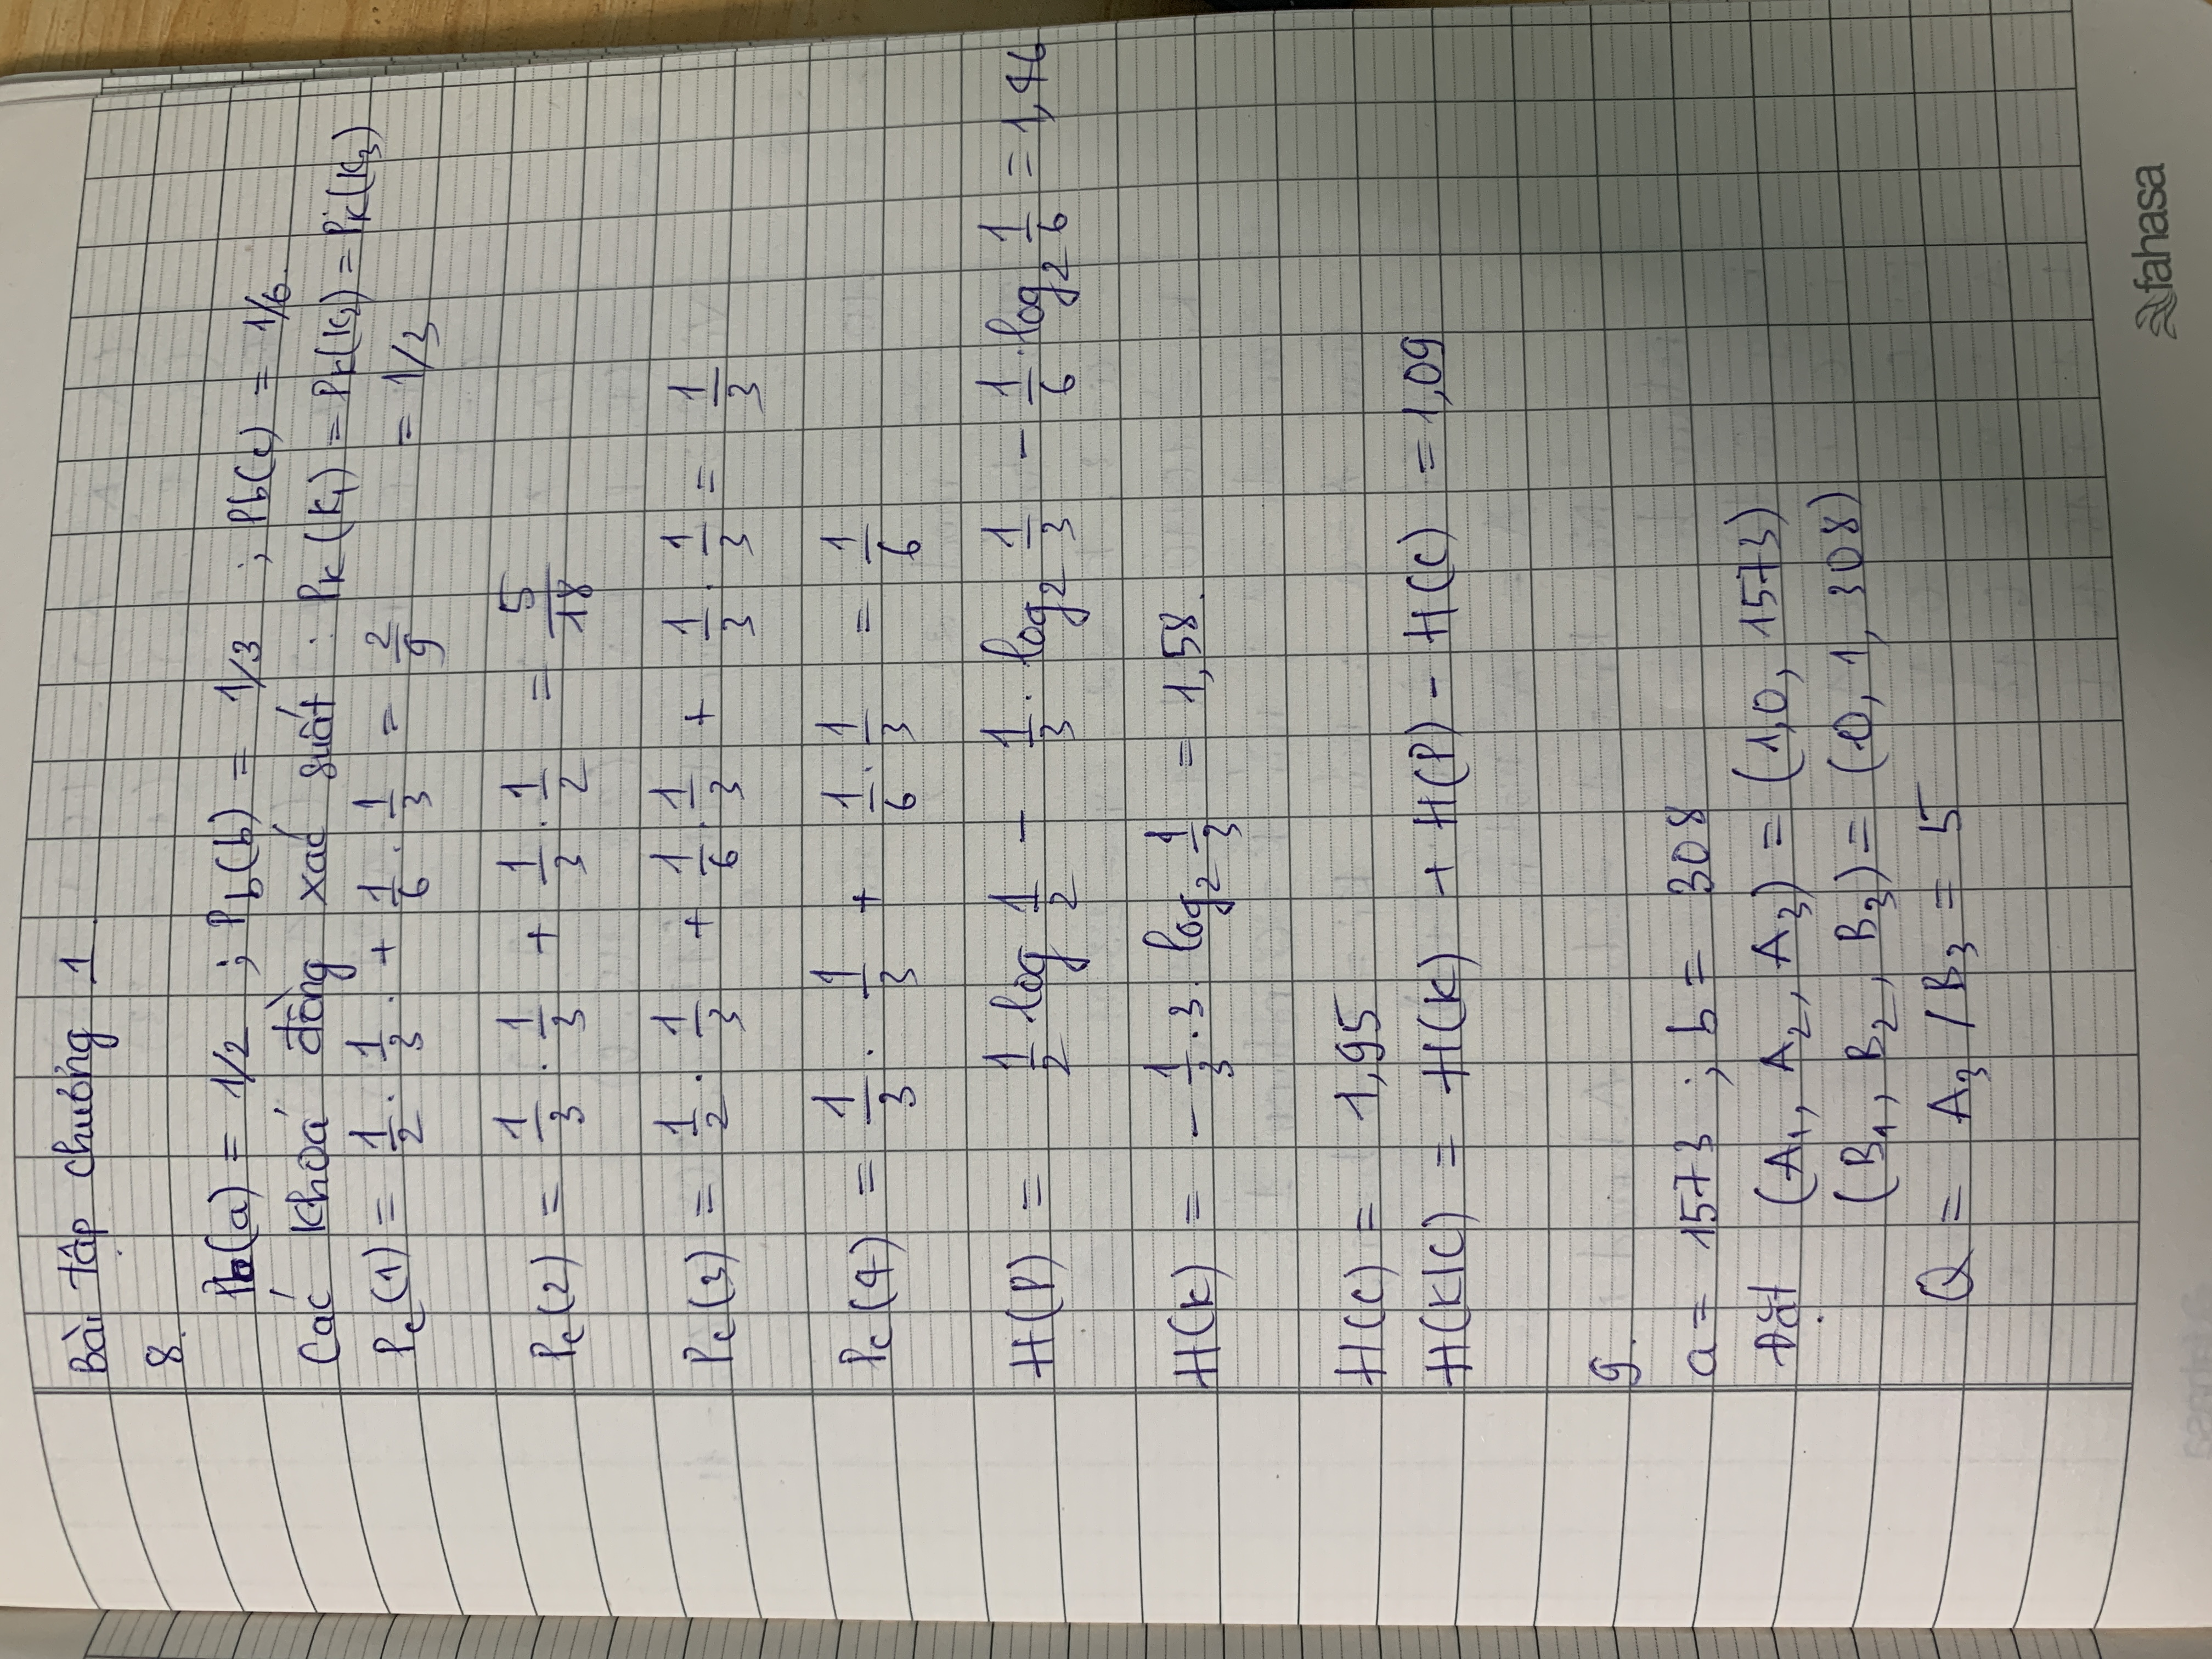 Bài tập chương 1
8.
Pb(a) = 1/2 ; Pb(b) = 1/3 ; Pb(c) = 1/6.
Các khoá đồng xác suất : Pk(K1) = Pk(K2) = Pk(K3)
Pc(1) = 1/2 . 1/3 . + 1/6 . 1/3 = 2/9 = 1/3
Pc(2) = 1/3 . 1/3 + 1/3 . 1/2 = 5/18
Pc(3) = 1/2 . 1/3 + 1/6 . 1/3 + 1/3 . 1/3 = 1/3
Pc(4) = 1/3 . 1/3 + 1/6 . 1/3 = 1/6
H(P) = 1/2 log 1/2 - 1/3 . log2 1/3 - 1/6 . log2 1/6 = 1,46
H(K) = - 1/3 . 3. log2 1/3 = 1,58.
H(C) = 1,95
H(K|C) = H(K) + H(P) - H(C) = 1,09
9.
a = 1573 ; b = 308
Đặt (A1, A2, A3) = (1,0, 1573)
(B1, B2, B3) = (0, 1, 308)
Q = A3 / B3 = 5
fahasa